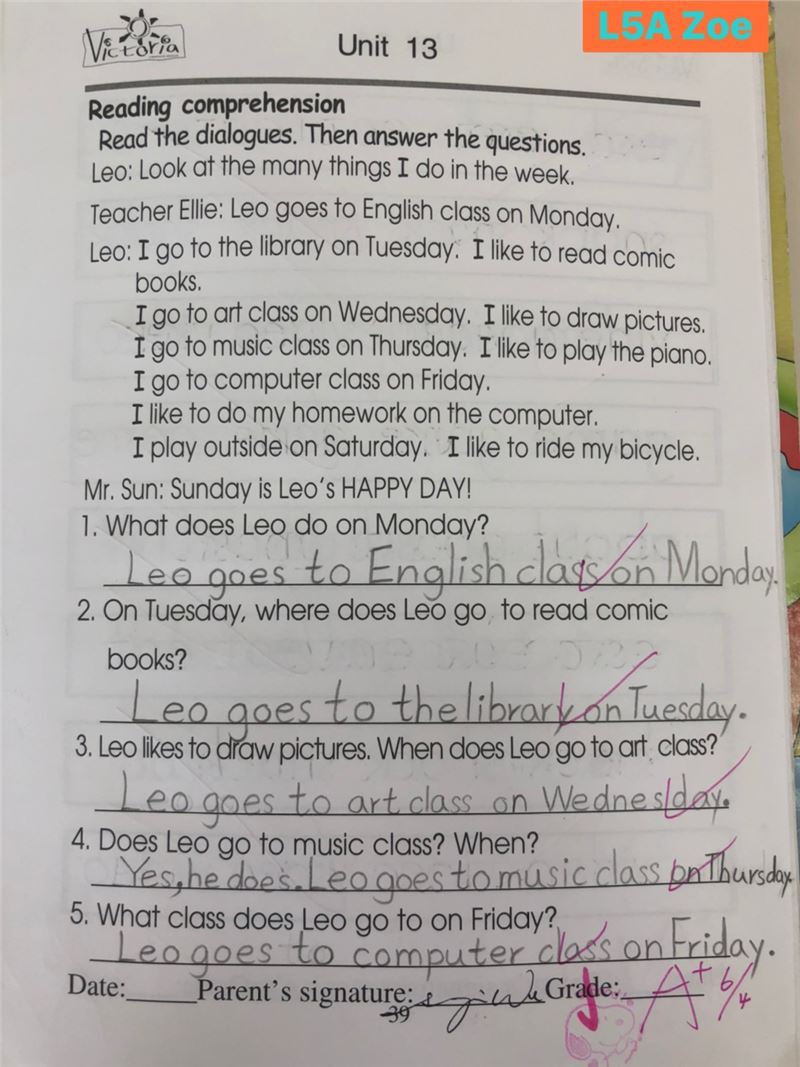 L5A Zoe
Victoria
Unit 13
Reading comprehension
Read the dialogues. Then answer the questions.
Leo: Look at the many things I do in the week.
Teacher Ellie: Leo goes to English class on Monday.
Leo: I go to the library on Tuesday. I like to read comic
books.
I go to art class on Wednesday. I like to draw pictures.
I go to music class on Thursday. I like to play the piano.
I go to computer class on Friday.
I like to do my homework on the computer.
I play outside on Saturday. I like to ride my bicycle.
Mr. Sun: Sunday is Leo's HAPPY DAY!
1. What does Leo do on Monday?
Leo goes to English class on Monday.
2. On Tuesday, where does Leo go to read comic
books?
Leo goes to the library on Tuesday.
3. Leo likes to draw pictures. When does Leo go to art class?
Leo goes to art class on Wednesday.
4. Does Leo go to music class? When?
Yes, he does. Leo goes to music class on Thursday.
5. What class does Leo go to on Friday?
Leo goes to computer class on Friday.
Date: Parent's signature: Grade: A+ 6/4
39